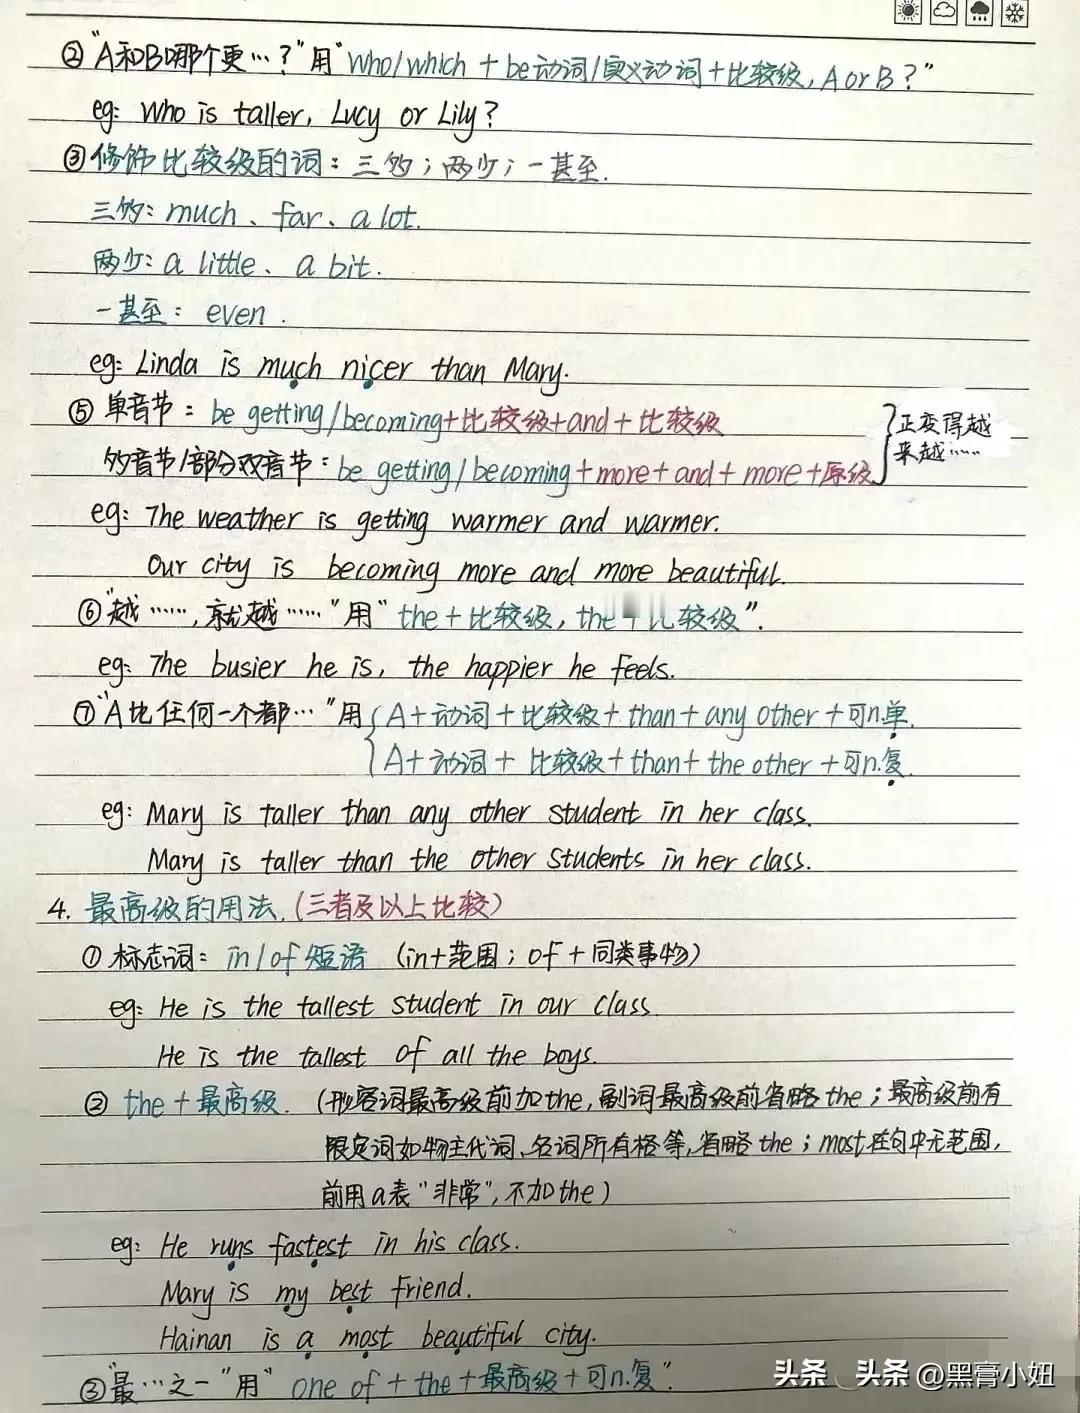 ②"A和B哪个更…?"用"who/which + be动词/实义动词+比较级, A or B?"
eg: Who is taller, Lucy or Lily?
③修饰比较级的词: 三多; 两少; 一甚至.
三多: much、far、a lot.
两少: a little、a bit.
一甚至: even.
eg: Linda is much nicer than Mary.
⑤单音节: be getting/becoming+比较级+and+比较级
多音节/部分双音节: be getting/becoming+more+and+more+原级
正变得越
来越……
eg: The weather is getting warmer and warmer.
Our city is becoming more and more beautiful.
⑥"越……, 就越……"用"the+比较级, the+比较级".
eg: The busier he is, the happier he feels.
⑦"A比任何一个都…"用 A+动词+比较级+than+any other+可n.单.
A+动词+比较级+than+the other+可n.复.
eg: Mary is taller than any other student in her class.
Mary is taller than the other students in her class.
4. 最高级的用法.(三者及以上比较)
①标志词: in/of短语 (in+范围; of+同类事物)
eg: He is the tallest student in our class
He is the tallest of all the boys.
② the+最高级. (形容词最高级前加the, 副词最高级前省略the; 最高级前有
限定词如物主代词、名词所有格等, 省略the; most在句中无范围,
前用a表"非常", 不加the)
eg: He runs fastest in his class.
Mary is my best friend.
Hainan is a most beautiful city.
③"最…之一"用"one of+the+最高级+可n.复".
头条 头条@黑膏小妞